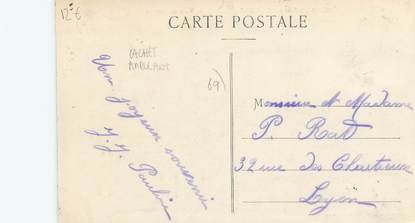 12 €
CARTE POSTALE
CACHET
AMBULANT
69)
Un joyeux souvenir
J. J. Paulin
Monsieur et Madame
P. Ratt
32 rue des Chartreux
Lyon